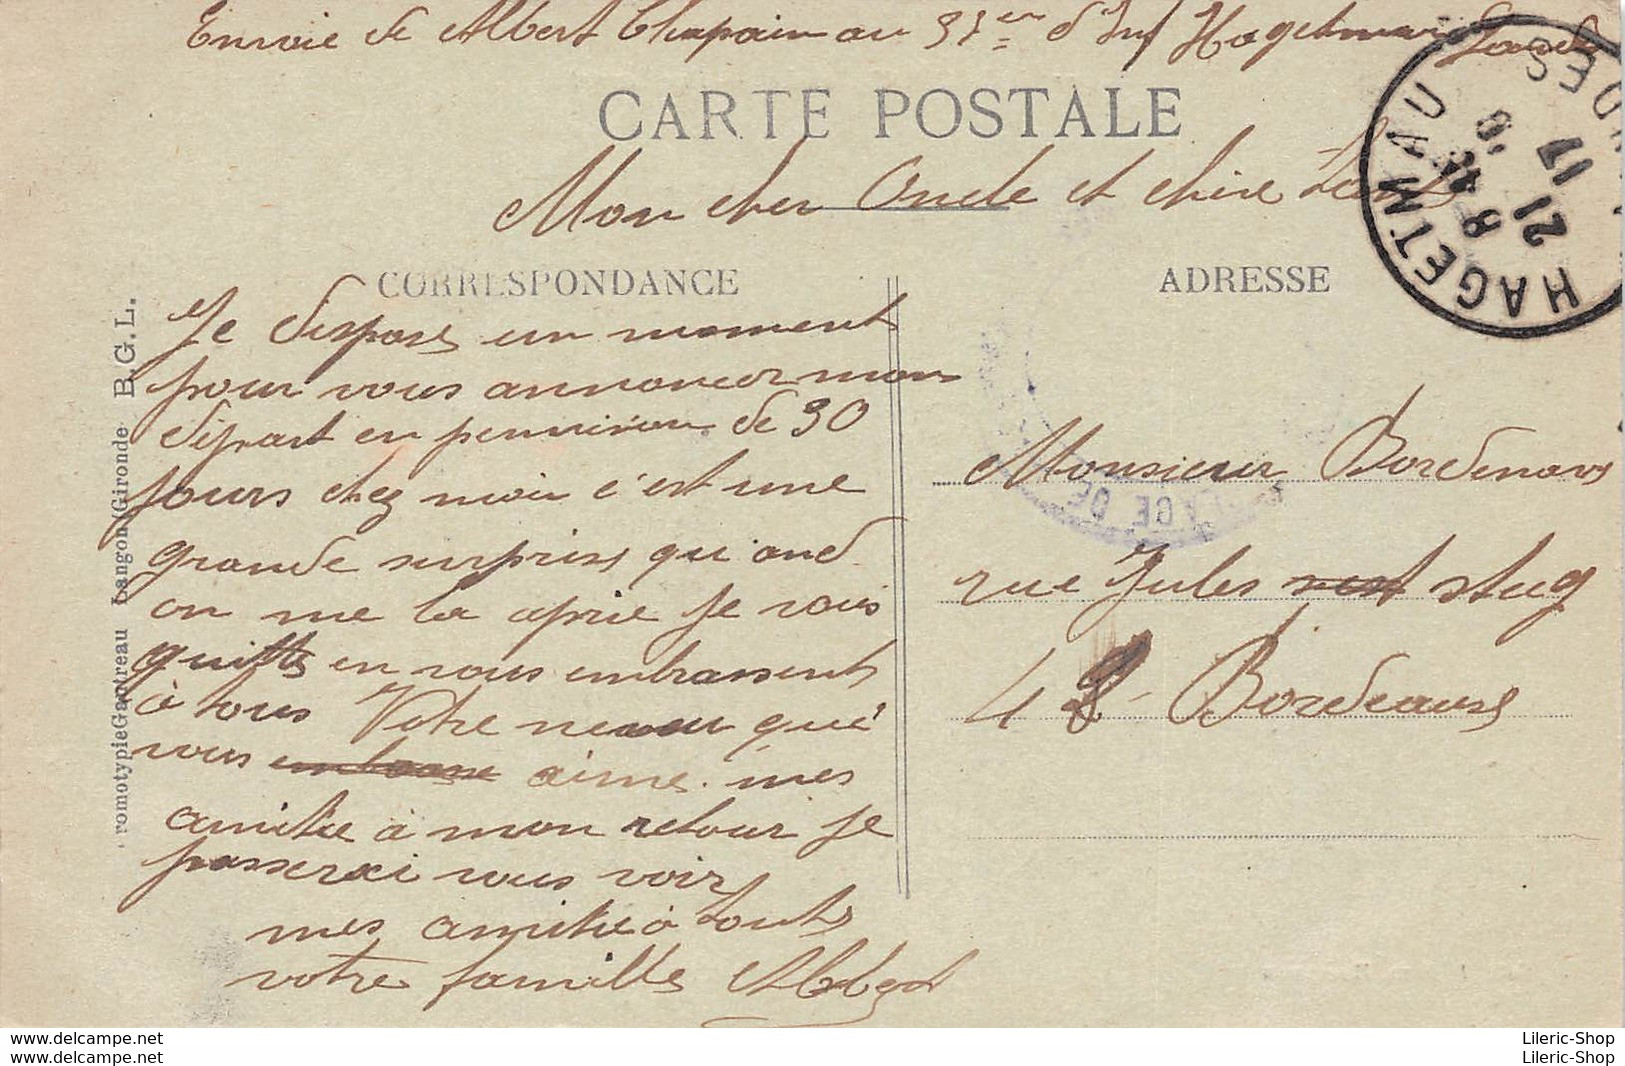 Envoie de Albert Chapain au 31em d'Inf Hagetmau Landes
CARTE POSTALE
Mon cher Oncle et chère Tante
CORRESPONDANCE
ADRESSE
HAGETMAU
8
21
17
Je dispose un moment
pour vous annoncer mon
départ en permision de 30
jours chez moi c'est une
grande surprise qu'and
on me la aprie je vais
quitte en vous embrassent
à tous Votre neveu qué
vous embrasse aime. mes
amitie à mon retour je
passerai vous voir
mes amitie à touts
votre famille Albert
Monsieur Bordenave
rue Jules rest steg
48 Bordeaux
PLACE DE
romotypie Gautreau Langon (Gironde B.G.L.
Lileric-Shop
delcampe.net
Lileric-Shop
delcampe.net